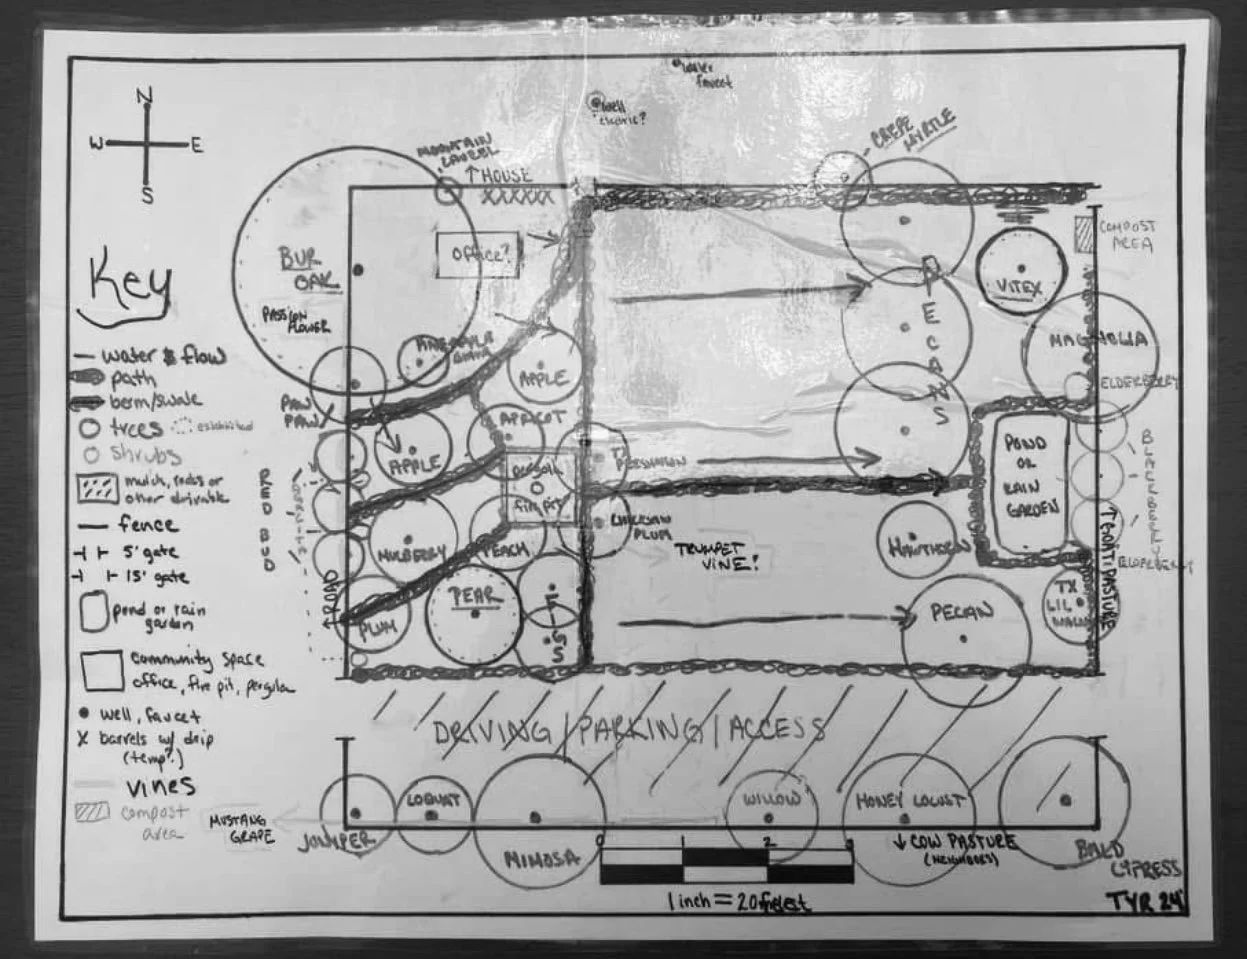 N
W E
S
water
faucet
well
electric?
CREPE
MYRTLE
MOUNTAIN
LAUREL
↑ HOUSE
XXXXXX
BUR
OAK
OFFICE?
PASSION
FLOWER
PINEAPPLE
GUAVA
APPLE
PAW
PAW
APRICOT
APPLE
pergola
firepit
PERSIMMON
CHICKASAW
PLUM
MULBERRY
PEACH
PEAR
PLUM
FIGS
RED BUD
ROAD
TRUMPET
VINE?
PECANS
VITEX
COMPOST
AREA
MAGNOLIA
ELDERBERRY
POND
OR
RAIN
GARDEN
BLACKBERRY
ELDERBERRY
HAWTHORN
PECAN
TX
LIL
PASTURE
DRIVING/PARKING/ACCESS
JUNIPER
LOQUAT
MIMOSA
WILLOW
HONEY LOCUST
BALD
CYPRESS
MUSTANG
GRAPE
↓ COW PASTURE
(NEIGHBORS)
0 1 2 3
1 inch = 20 feet
TYR 24'
Key
water & flow
path
berm/swale
trees established
shrubs
mulch, rocks or
other drivable
fence
5' gate
15' gate
pond or rain
garden
community space
office, fire pit, pergola
well, faucet
X barrels w/ drip
(temp?)
vines
compost
area